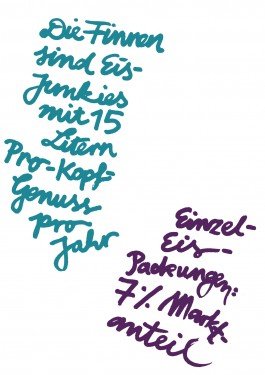 Die Finnen
sind Eis-
Junkies
mit 15
Litern
Pro-Kopf-
Genuss
pro
Jahr
Einzel-
Eis-
Packungen:
7% Markt-
anteil